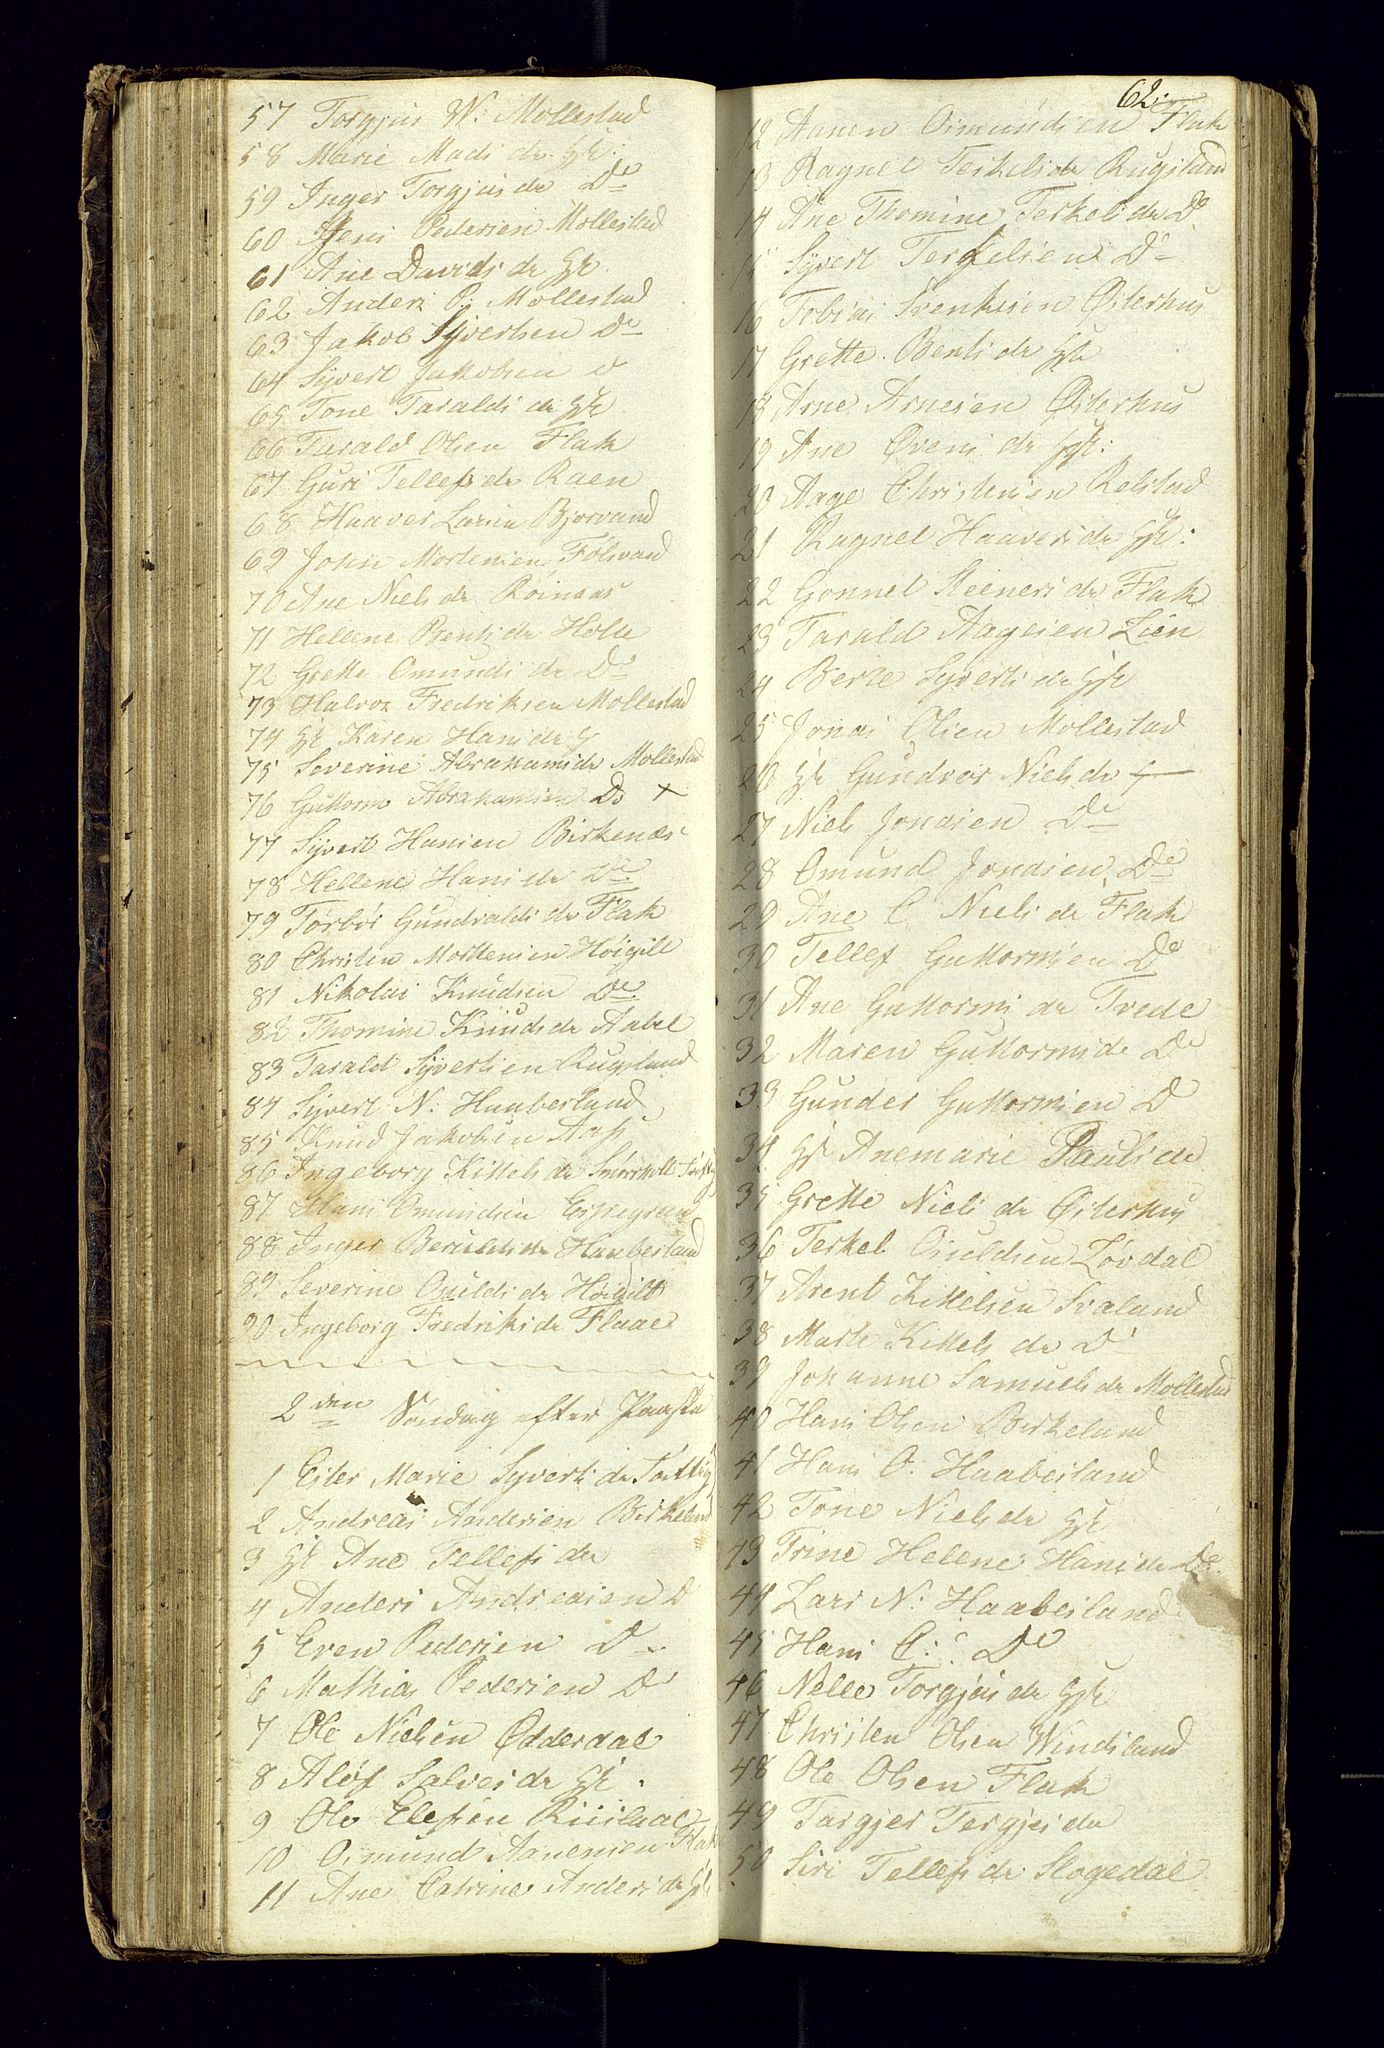 57 Torgjus W: Mollestad
58 Marie Madsdr. Hst:
59 Inger Torgjusdr Do
60 Jens Pedersen Mollestad
61 Ane Davidsdr Hst.
62 Anders P: Mollestad
63 Jakob Syvertsen Do
64 Syvert Jakobsen
65 Tone Taraldsdr Hst
66 Tarald Olsen Flak
67 Guri Tellefsdr Raen
68 Haaver Larsen Bjorvand
69 John Mortensen Tolvand
70 Ane Nielsdr Roinaas
71 Hellene Bentsdr Holte
72 Grette Omundsdr Do
73 Halvor Fredriksen Mollestad
74 Hst Karen Hansdr
75 Severine Abrahamsdr Mollestad
76 Guttorm Abrahamsen Do x
77 Syvert Hansen Birkenæs
78 Hellene Hansdr Do
79 Torbør Gundvaldsdr Flak
80 Christen Mortensen Høigilt
81 Nikolai Knudsen Do
82 Thomine Knudsdr Aabel
83 Tarald Syvertsen Rugsland
84 Syvert N: Haaberland
85 Knud Jakobsen Aas
86 Ingeborg Kittelsdr
87 Hans Omundsen Espegran
88 Inger Berulsdr Haaberland
89 Severine Osuldsdr Høigilt
90 Ingeborg Fredriksdr Flaae
2den Søndag efter Paaske
1 Ester Marie Syvertsdr
2 Andreas Andersen Birkeland
3 Hst Ane Tellefsdr
4 Anders Andreasen D
5 Even Pedersen Do
6 Mathias Pedersen Do
7 Ole Nielsen Odderdal
8 Aløf Salvesdr Hst.
9 Ole Elefsen
10 Osmund Aanensen Flak
11 Ane Catrine Andersdr Hst
62.
12 Aanen Osmundsen Flak
13 Ragnel Terkelsdr Rugsland
14 Ane Thomine Terkelsdr Do
15 Syvert Terkelsen Do
16 Tobias Svenksen Østerhus
17 Grette Bentsdr Hst
18 Arne Arnesen Østerhus
19 Ane Ovensdr Hst:
20 Aage Christensen Retstad
21 Ragnel Haaversdr Hst:
22 Gonnel Steinersdr Flak
23 Tarald Aagesen Lien
24 Berte Syvertsdr Hst
25 Jonas Olsen Mollestad
26 Hst Gundvor Nielsdr
27 Niels Jonasen Do
28 Omund Jonasen Do
29 Ane C. Nielsdr Flak
30 Tellef Guttormsen Do
31 Ane Guttormsdr Tvede
32 Maren Guttormsdr Do
33 Gunder Guttormsen D
34 Hst Anemarie Paulsdr
35 Grette Nielsdr Østerhus
36 Terkel Osuldsen Løvdal
37 Arent Kittelsen Svaland
38 Marte Kittelsdr Do
39 Johanne Samuelsdr Mollestad
40 Hans Olsen Birkeland
41 Hans O. Haabesland
42 Tone Nielsdr Hst
43 Trine Helene Hansdr Do
44 Lars N: Haabesland
45 Hans C: Do
46 Nelle Torgjusdr Hst
47 Christen Olsen Windsland
48 Ole Olsen Flak
49 Targjer Tergjesdr
50 Siri Tellefsdr Slogedal